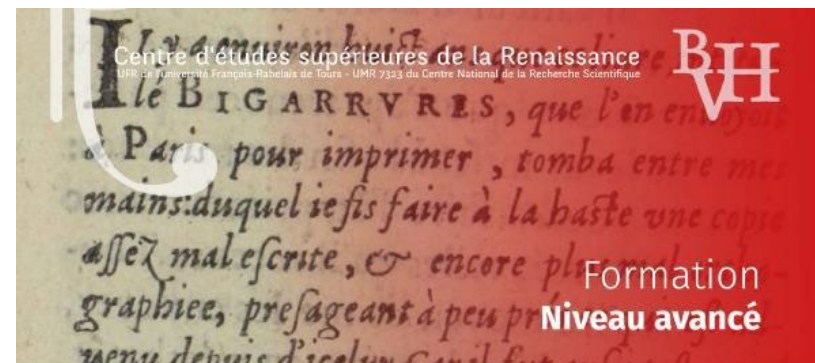 Centre d'études supérieures de la Renaissance
UFR de l'université François-Rabelais de Tours - UMR 7323 du Centre National de la Recherche Scientifique
BVH
Il y a environ huict ans
lé BIGARRVRES, que l'en enuoyoit
à Paris pour imprimer, tomba entre mes
mains: duquel ie fis faire à la haste vne copie
assez mal escrite, & encore
graphiee, presageant à peu
uenu depuis d'iceluy
Formation
Niveau avancé